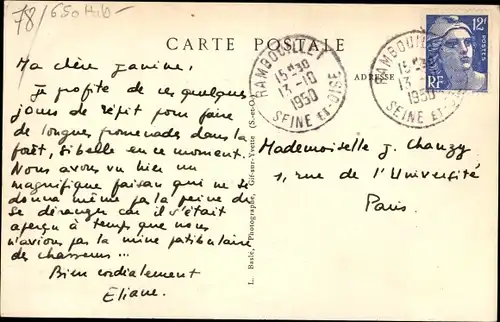 78/650 Hab-
CARTE POSTALE
ADRESSE
RAMBOUILLET
15-30
13-10
1950
SEINE ET-OISE
RAMBOUILLET
15-30
13-10
1950
SEINE ET-OISE
12F
POSTES
RF
Ma chère Janine,
Je profite de ces quelques
jours de répit pour faire
de longues promenades dans la
forêt, si belle en ce moment.
Nous avons vu hier un
magnifique faisan qui ne se
donna même pas la peine de
se déranger car il s'était
aperçu à temps que nous
n'avions pas la mine patibulaire
des chasseurs ...
Bien cordialement
Eliane.
L. Basle, Photographe, Gif-sur-Yvette (S.-et-O.)
Mademoiselle J. Chauzy
1, rue de l'Université
Paris.